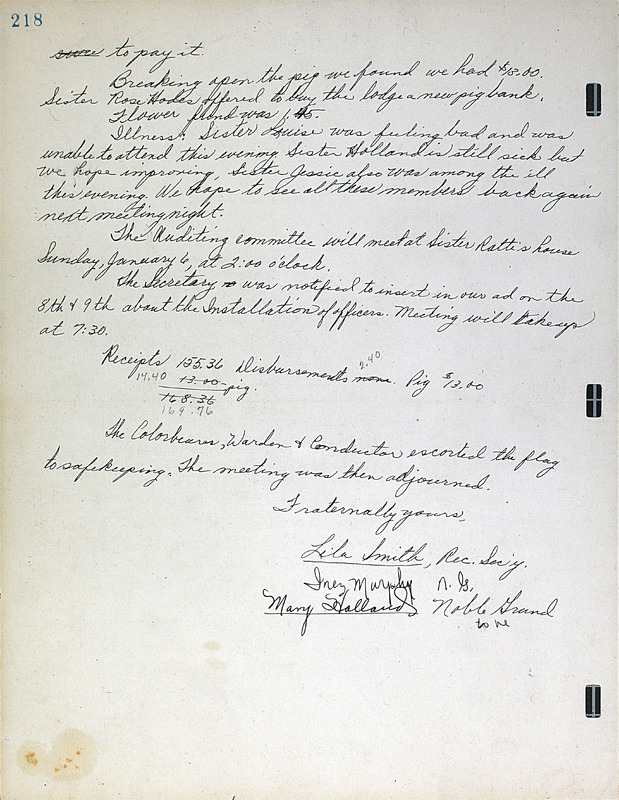 218
sure to pay it.
Breaking open the pig we found we had $13.00.
Sister Rose Hodes offered to buy the lodge a new pig bank.
Flower fund was 1.45.
Illness: Sister Louise was feeling bad and was
unable to attend this evening. Sister Holland is still sick but
we hope improving, Sister Jessie also was among the ill
this evening. We hope to see all these members back again
next meeting night.
The Auditing committee will meet at Sister Ratti's house
Sunday, January 6, at 2:00 o'clock.
The Secretary was notified to insert in our ad on the
8th & 9th about the Installation of officers. Meeting will take up
at 7:30.
2.40
Receipts 155.36 Disbursements none. Pig $13.00
14.40 13.00 pig.
168.36
169.76
The Colorbearers, Warden & Conductor escorted the flag
to safekeeping. The meeting was then adjourned.
Fraternally yours,
Lila Smith, Rec. Sec'y.
Inez Murphy N. G.
Mary Holland Noble Grand